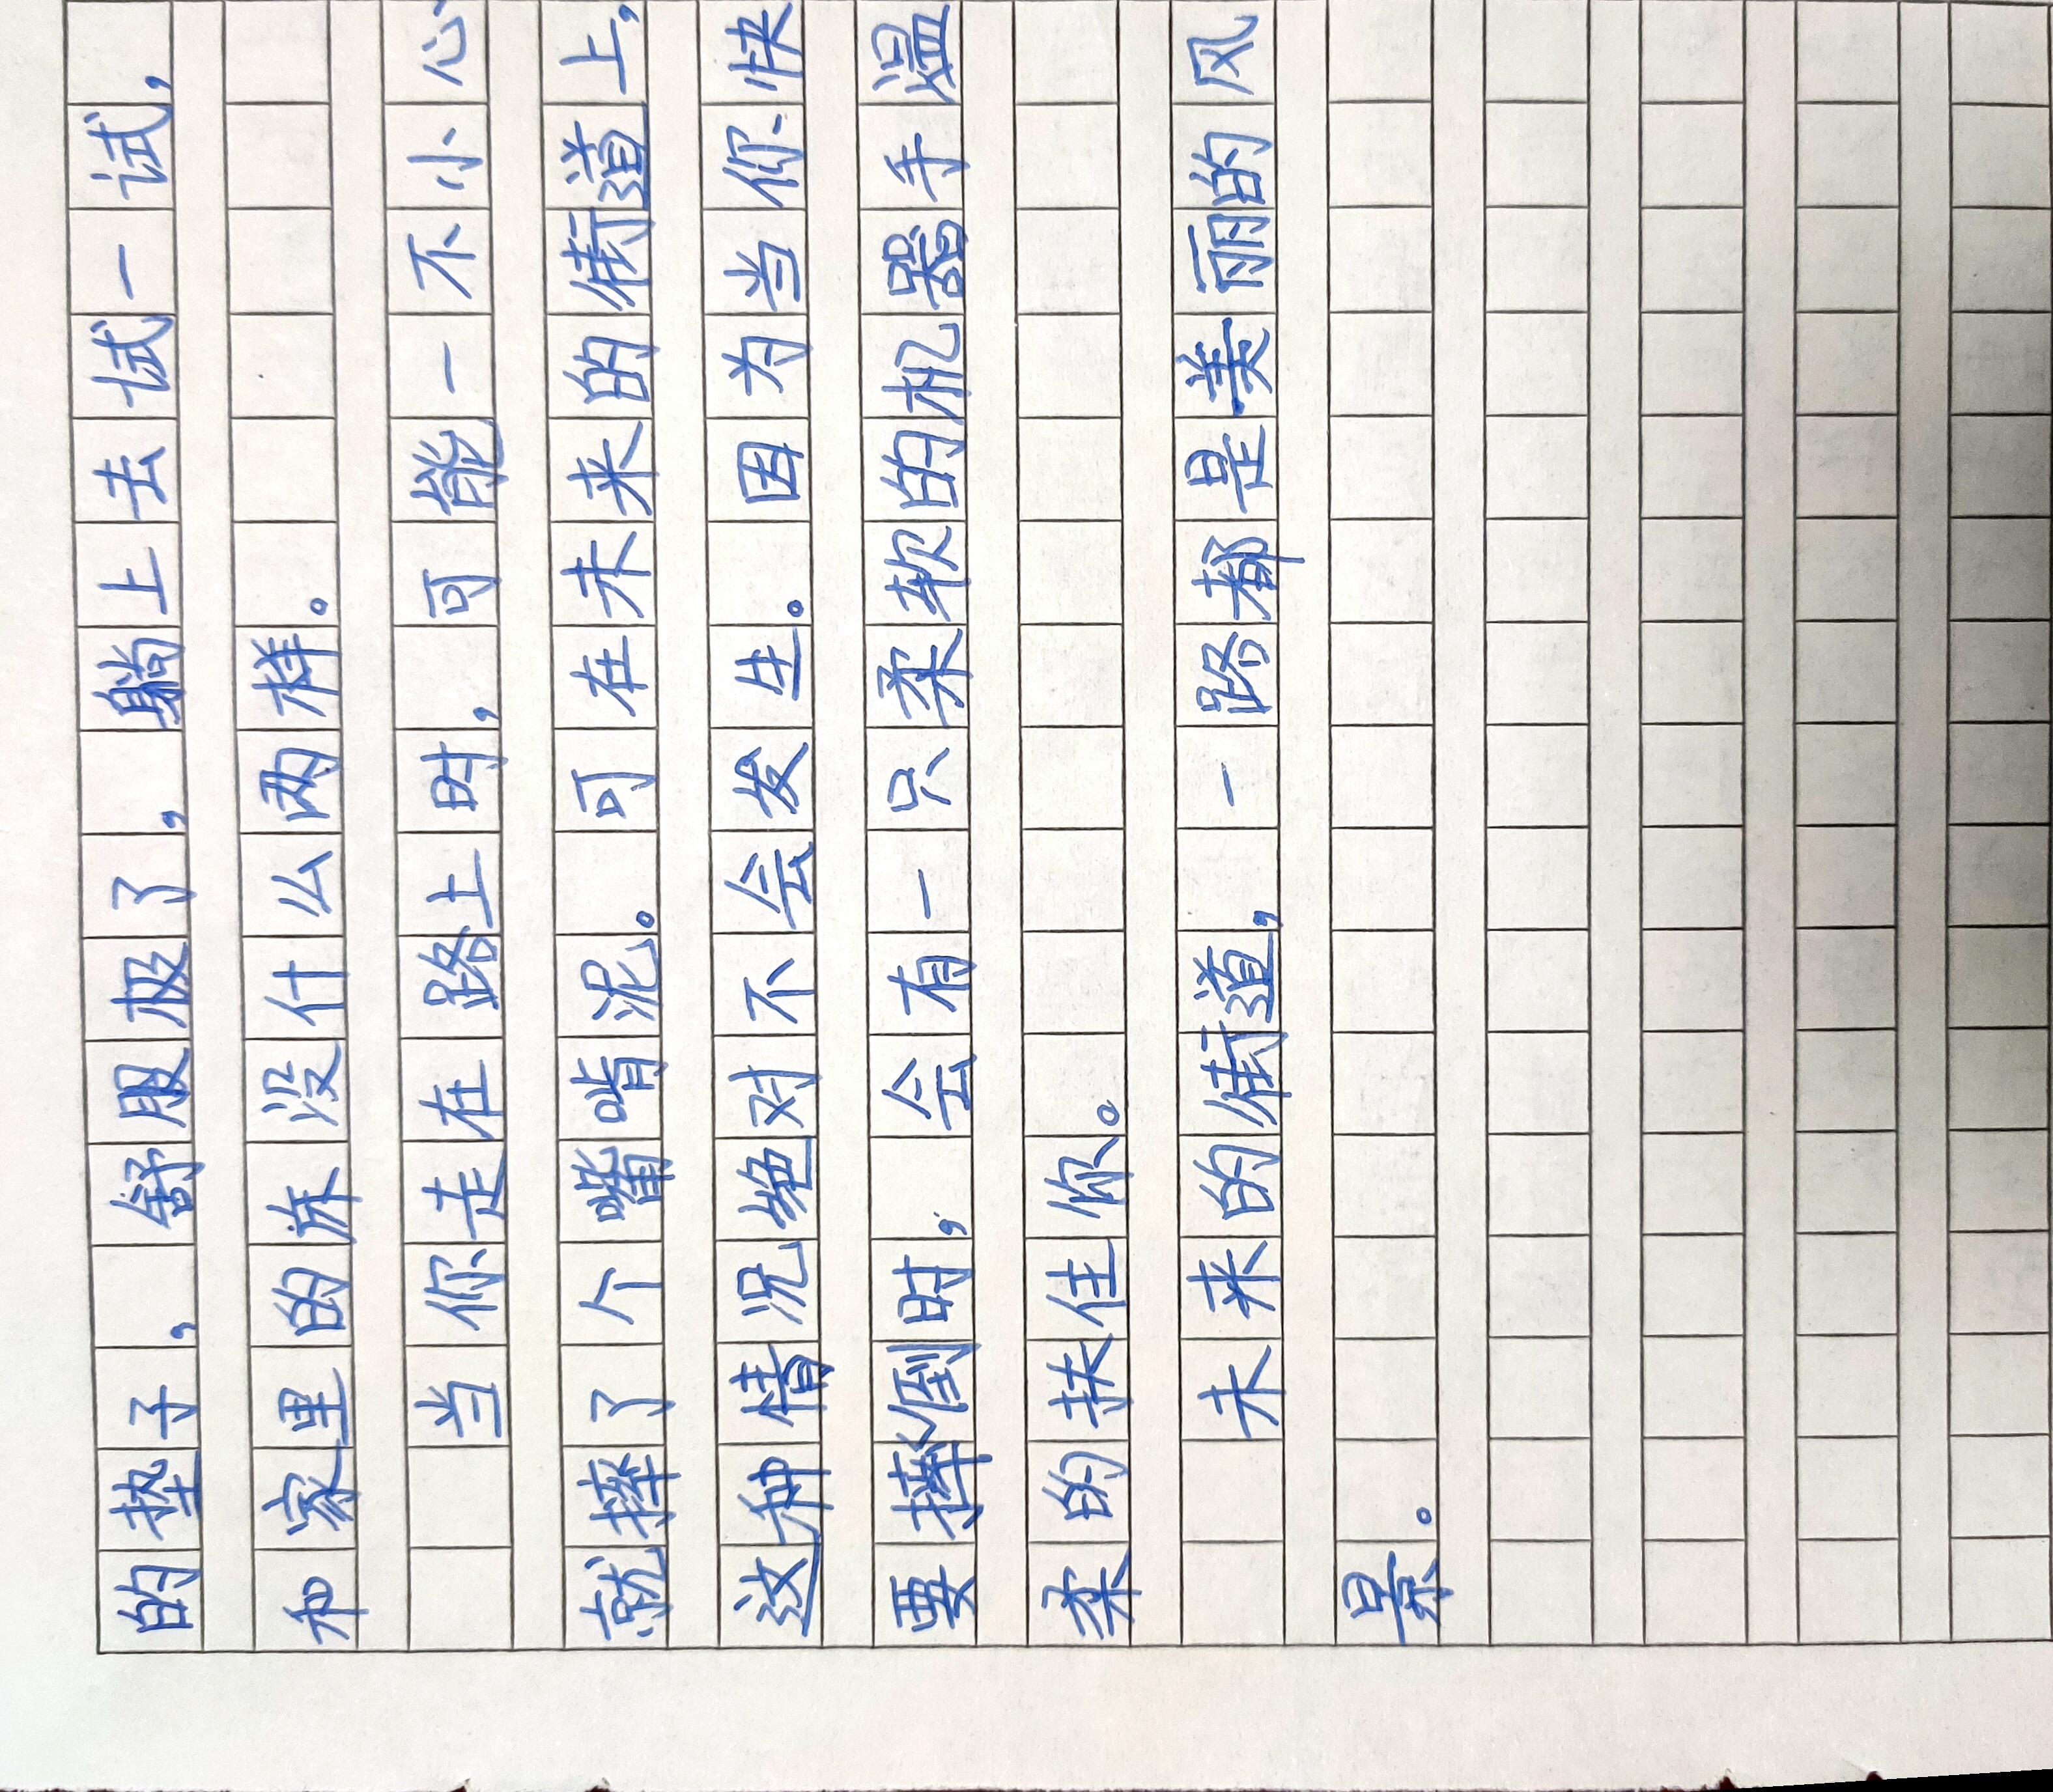 的垫子，舒服极了，躺上去试一试，
和家里的床没什么两样。
当你走在路上时，可能一不小心
就摔了个嘴啃泥。可在未来的街道上，
这种情况绝对不会发生。因为当你快
要摔倒时，会有一只柔软的机器手温
柔的扶住你。
未来的街道，一路都是美丽的风
景。